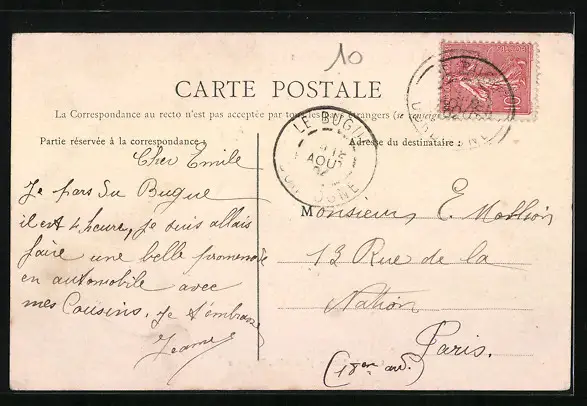 10
CARTE POSTALE
La Correspondance au recto n'est pas acceptée par tous les pays étrangers (se renseigner
Partie réservée à la correspondance:
Adresse du destinataire:
LE BUGUE
12
AOUT
DORDOGNE
Cher Emile
Je pars du Bugue
il est 4 heure, je suis allais
faire une belle promenade
en automobile avec
mes Cousins. Je t'embrasse
Jeanne
Monsieur E.
13 Rue de la
Nation
Paris.
(18em